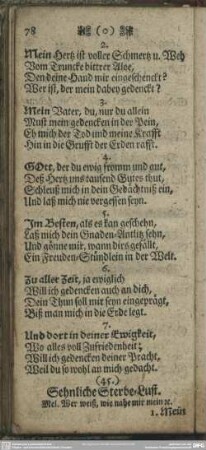 78 (o)
2.
Mein Hertz ist voller Schmertz u. Weh
Vom Truncke bittrer Aloe,
Den deine Hand mir eingeschenckt?
Wer ist, der mein dabey gedenckt?
3.
Mein Vater, du, nur du allein
Must mein gedencken in der Pein,
Eh mich der Tod und meine Krafft
Hin in die Grufft der Erden rafft.
4.
GOtt, der du ewig fromm und gut,
Deß Hertz uns tausend Gutes thut,
Schleuß mich in dein Gedächtniß ein,
Und laß mich nie vergessen seyn.
5.
Im Besten, als es kan geschehn,
Laß mich dein Gnaden-Antlitz sehn,
Und gönne mir, wann dirs gefällt,
Ein Freuden-Stündlein in der Welt.
6.
Zu aller Zeit, ja ewiglich
Will ich gedencken auch an dich,
Dein Thun soll mir seyn eingeprägt,
Biß man mich in die Erde legt.
7.
Und dort in deiner Ewigkeit,
Wo alles voll Zufriedenheit,
Will ich gedencken deiner Pracht,
Weil du so wohl an mich gedacht.
(45.)
Sehnliche Sterbe-Lust.
Mel. Wer weiß, wie nahe mir mein ꝛc.
1. Mein